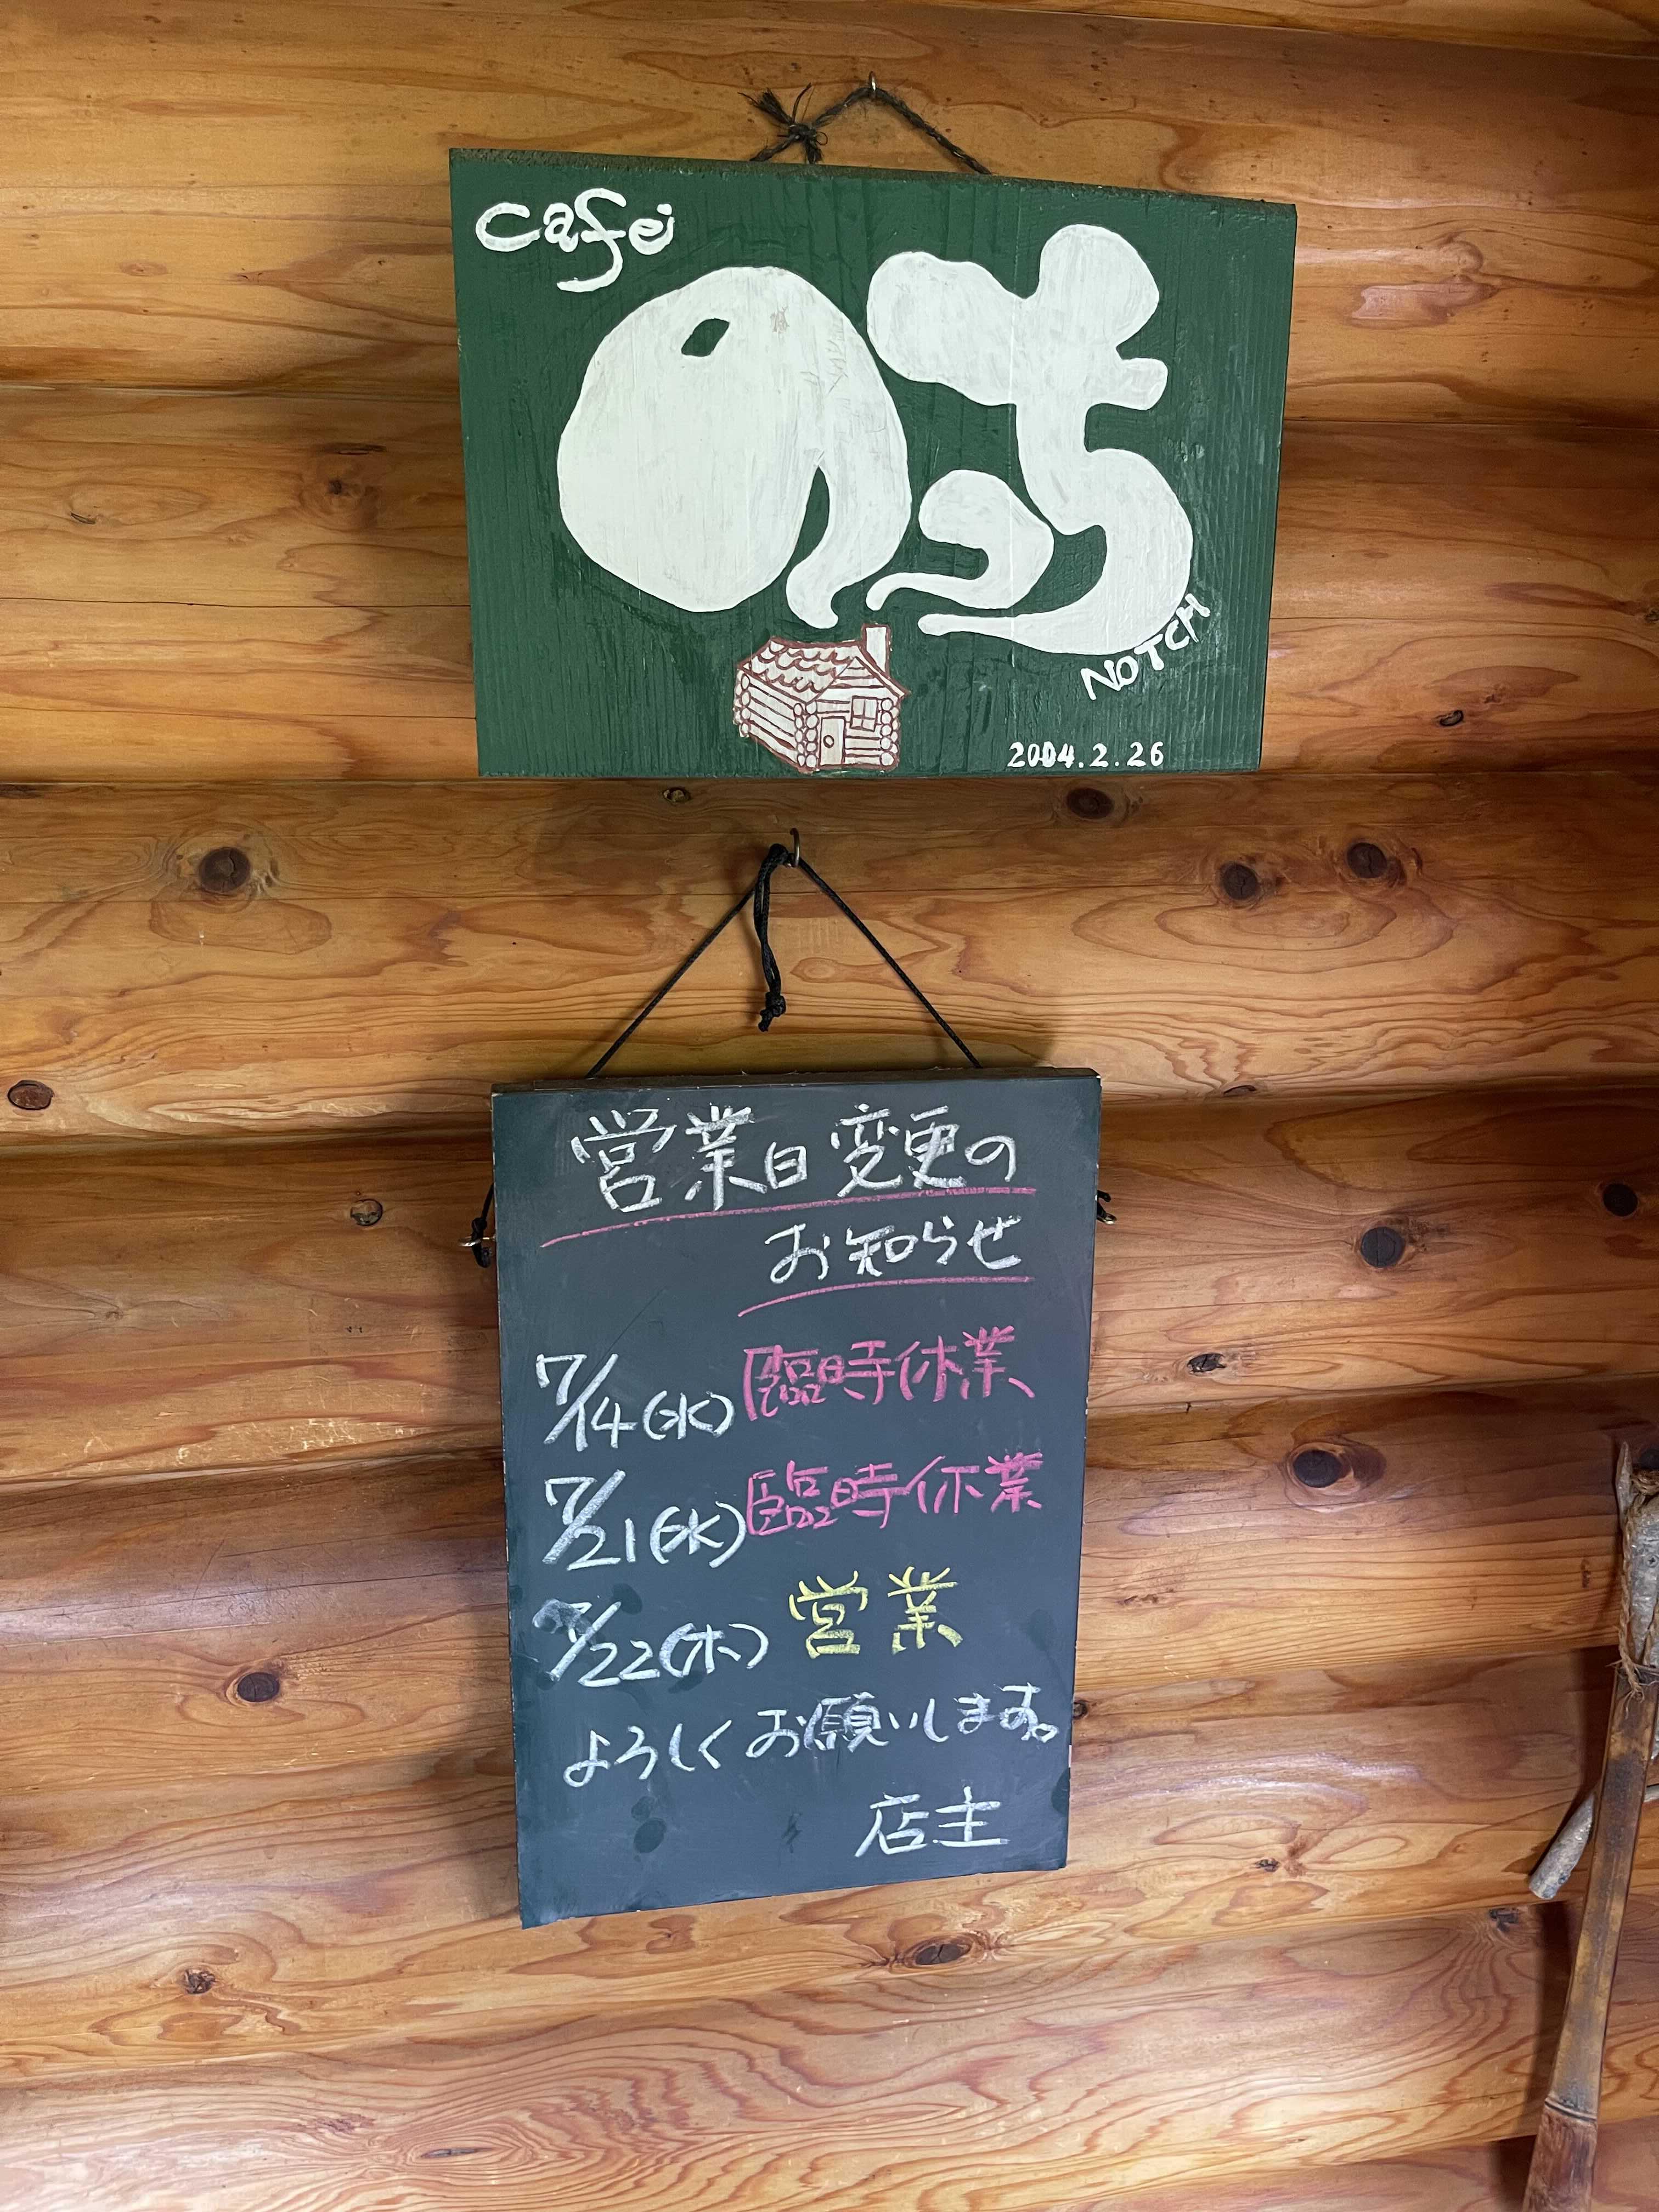 cafe
のっち
NOTCH
2004.2.26
営業日変更の
お知らせ
7/14(水) 臨時休業
7/21(水) 臨時休業
7/22(木) 営業
よろしくお願いします。
店主